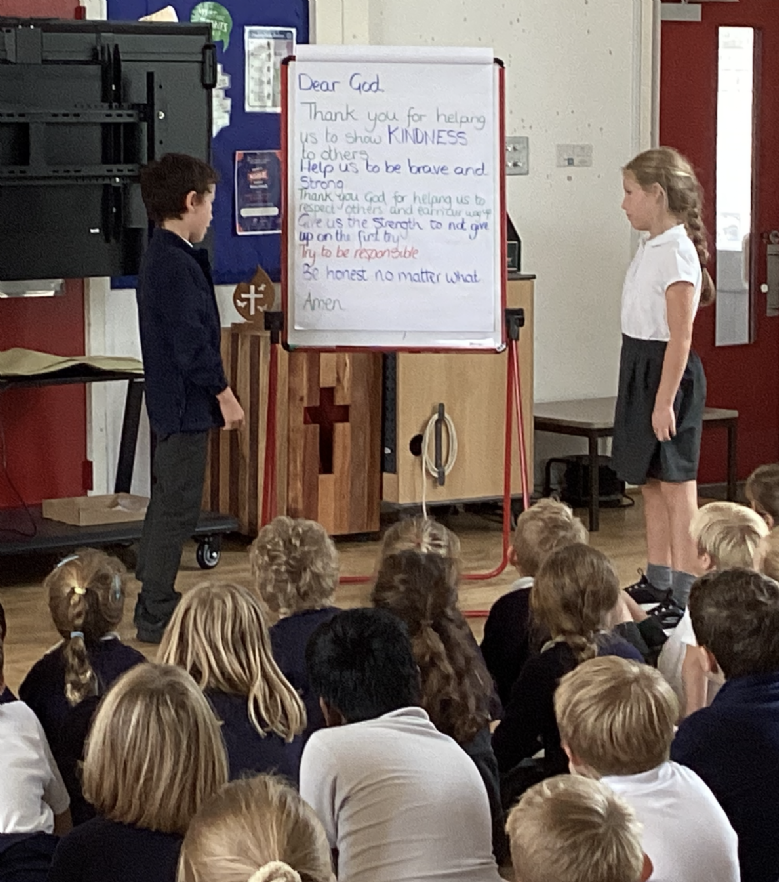 Dear God
Thank you for helping
us to show KINDNESS
to others
Help us to be brave and
Strong
Thank you God for helping us to
respect others and earn our
Give us the Strength to not give
up on the first try
Try to be responsible
Be honest no matter what
Amen